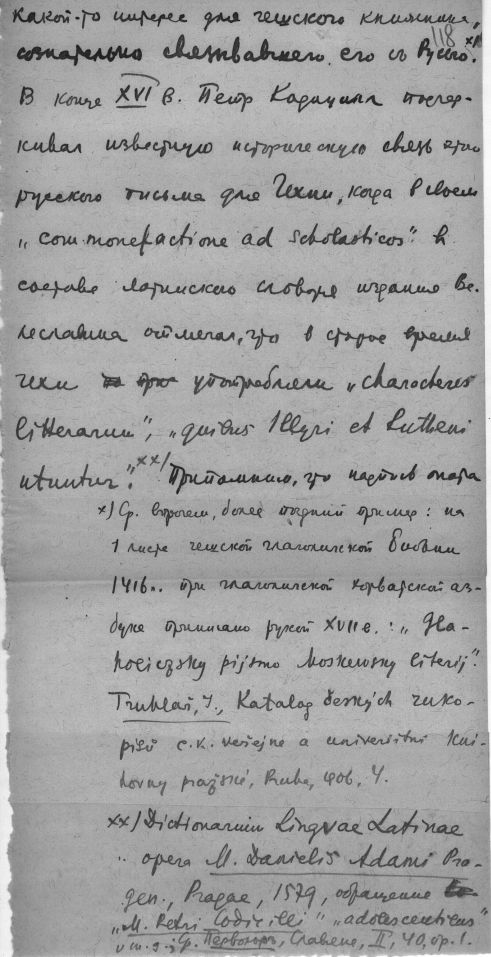 какой-то интерес для чешского книжника,
118
сознательно связывавшего его съ Русью. x)
В конце XVI в. Петр Кодицилл подчер-
кивал известную историческую связь этого
русского письма для Чехии, когда в своем
„commonefactione ad scholasticos" в
составе латинского словаря издания Ве-
леславина отмечал, что в старое время
чехи употребляли „characteres
litterarum", „quibus Illyri et Rutheni
utuntur". xx) Припомним, что надпись
x) Ср. впрочем, более поздний пример: на
1 листе чешской глаголической Библии
1416.. при глаголической хорватской аз-
буке приписано рукой XVII в.: „Hla-
holiczsky pijsmo Moskewsky literij".
Truhlář, J., Katalog českých ruko-
pisů c.k. veřejné a universitní kni-
hovny pražské, Praha, 1906, 4.
xx) Dictionarium Linguae Latinae
opera M. Danielis Adami Pra-
gen., Pragae, 1579, обращение
„M. Petri Codicilli" „adolescentibus"
и т.д. Ср. Первольф, Славяне, II, 40, пр. 1.